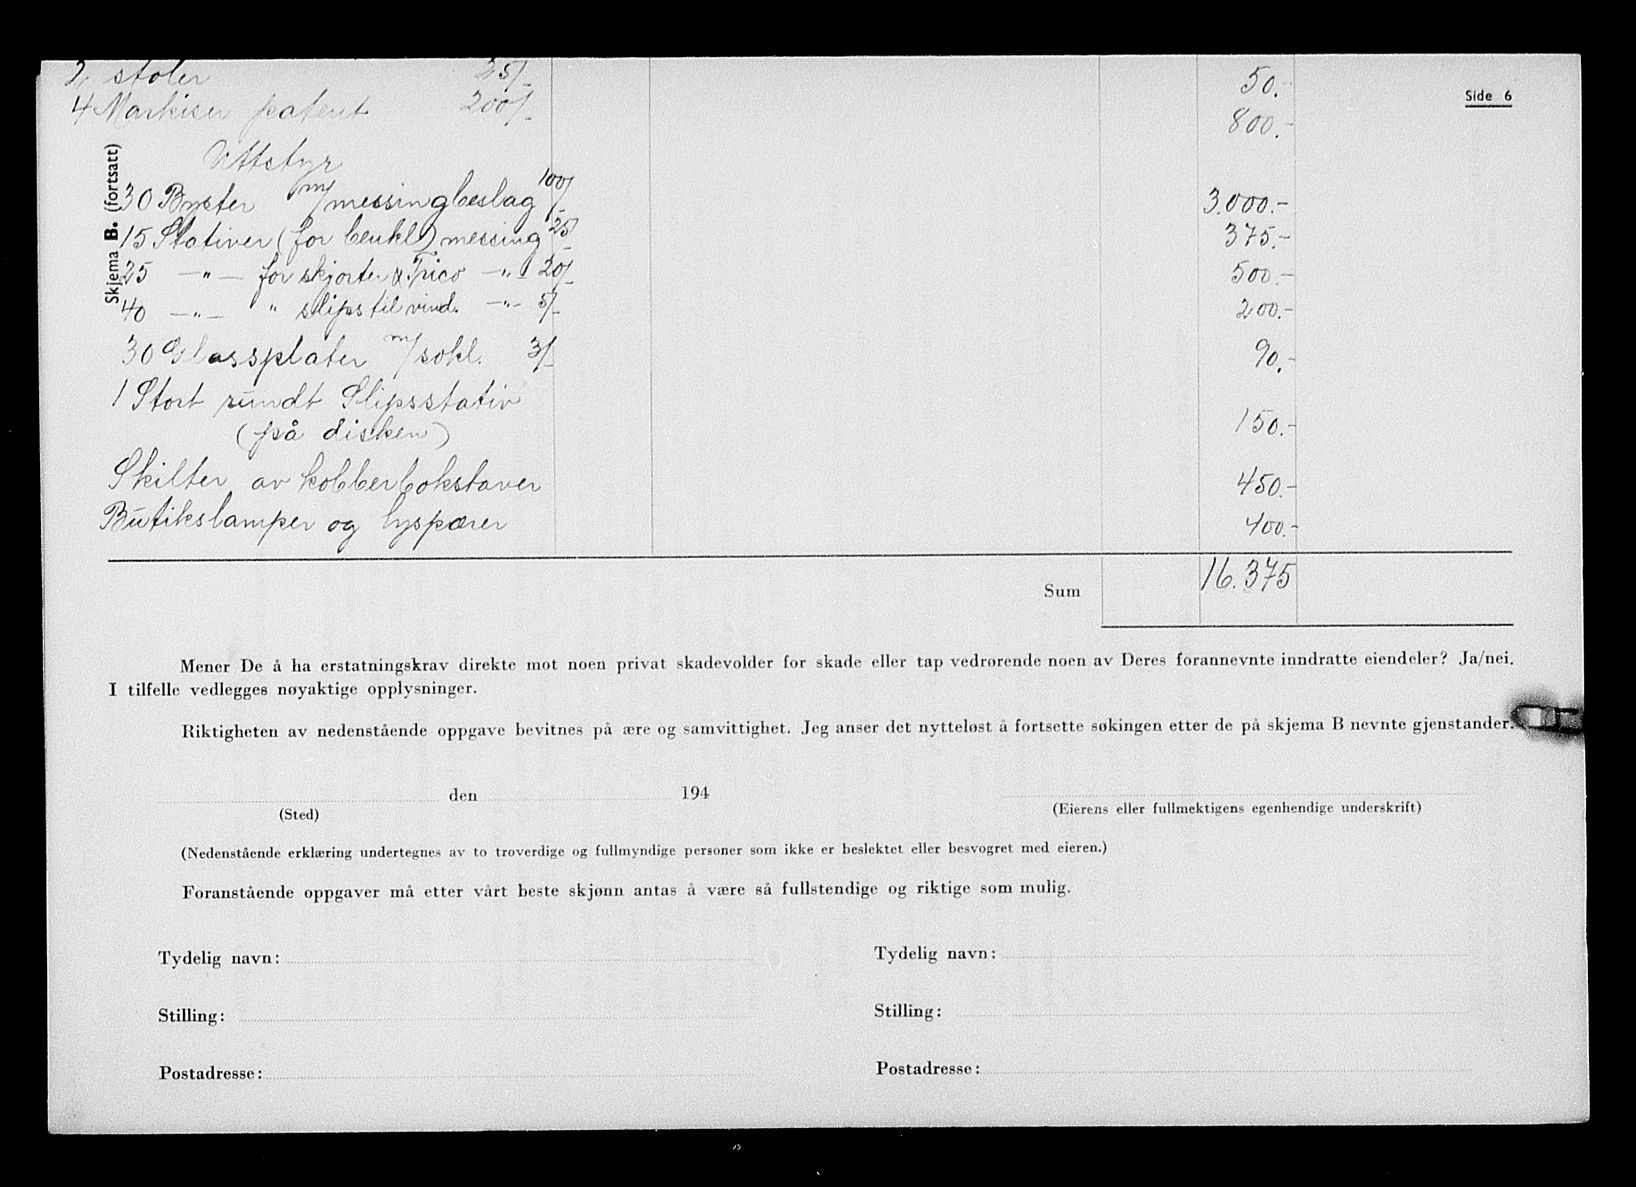 2 stoler 25/- 50.-
Side 6
4 Markiser patent 200/- 800.-
Skjema B. (fortsatt)
Utstyr
30 Byster m/messingbeslag 100/- 3.000.-
15 Stativer (for benkl) messing 25/- 375.-
25 —"— for skjorter & Trico —"— 20/- 500.-
40 —"— " slips til vind. —"— 5/- 200.-
30 Glassplater m/sokl. 3/- 90.-
1 Stort rundt Slipsstativ
(på disken) 150.-
Skilter av kobberbokstaver 450.-
Butikslamper og lyspærer 400.-
Sum 16.375
Mener De å ha erstatningskrav direkte mot noen privat skadevolder for skade eller tap vedrørende noen av Deres forannevnte inndratte eiendeler? Ja/nei.
I tilfelle vedlegges nøyaktige opplysninger.
Riktigheten av nedenstående oppgave bevitnes på ære og samvittighet. Jeg anser det nytteløst å fortsette søkingen etter de på skjema B nevnte gjenstander.
den 194
(Sted) (Eierens eller fullmektigens egenhendige underskrift)
(Nedenstående erklæring undertegnes av to troverdige og fullmyndige personer som ikke er beslektet eller besvogret med eieren.)
Foranstående oppgaver må etter vårt beste skjønn antas å være så fullstendige og riktige som mulig.
Tydelig navn: Tydelig navn:
Stilling: Stilling:
Postadresse: Postadresse: